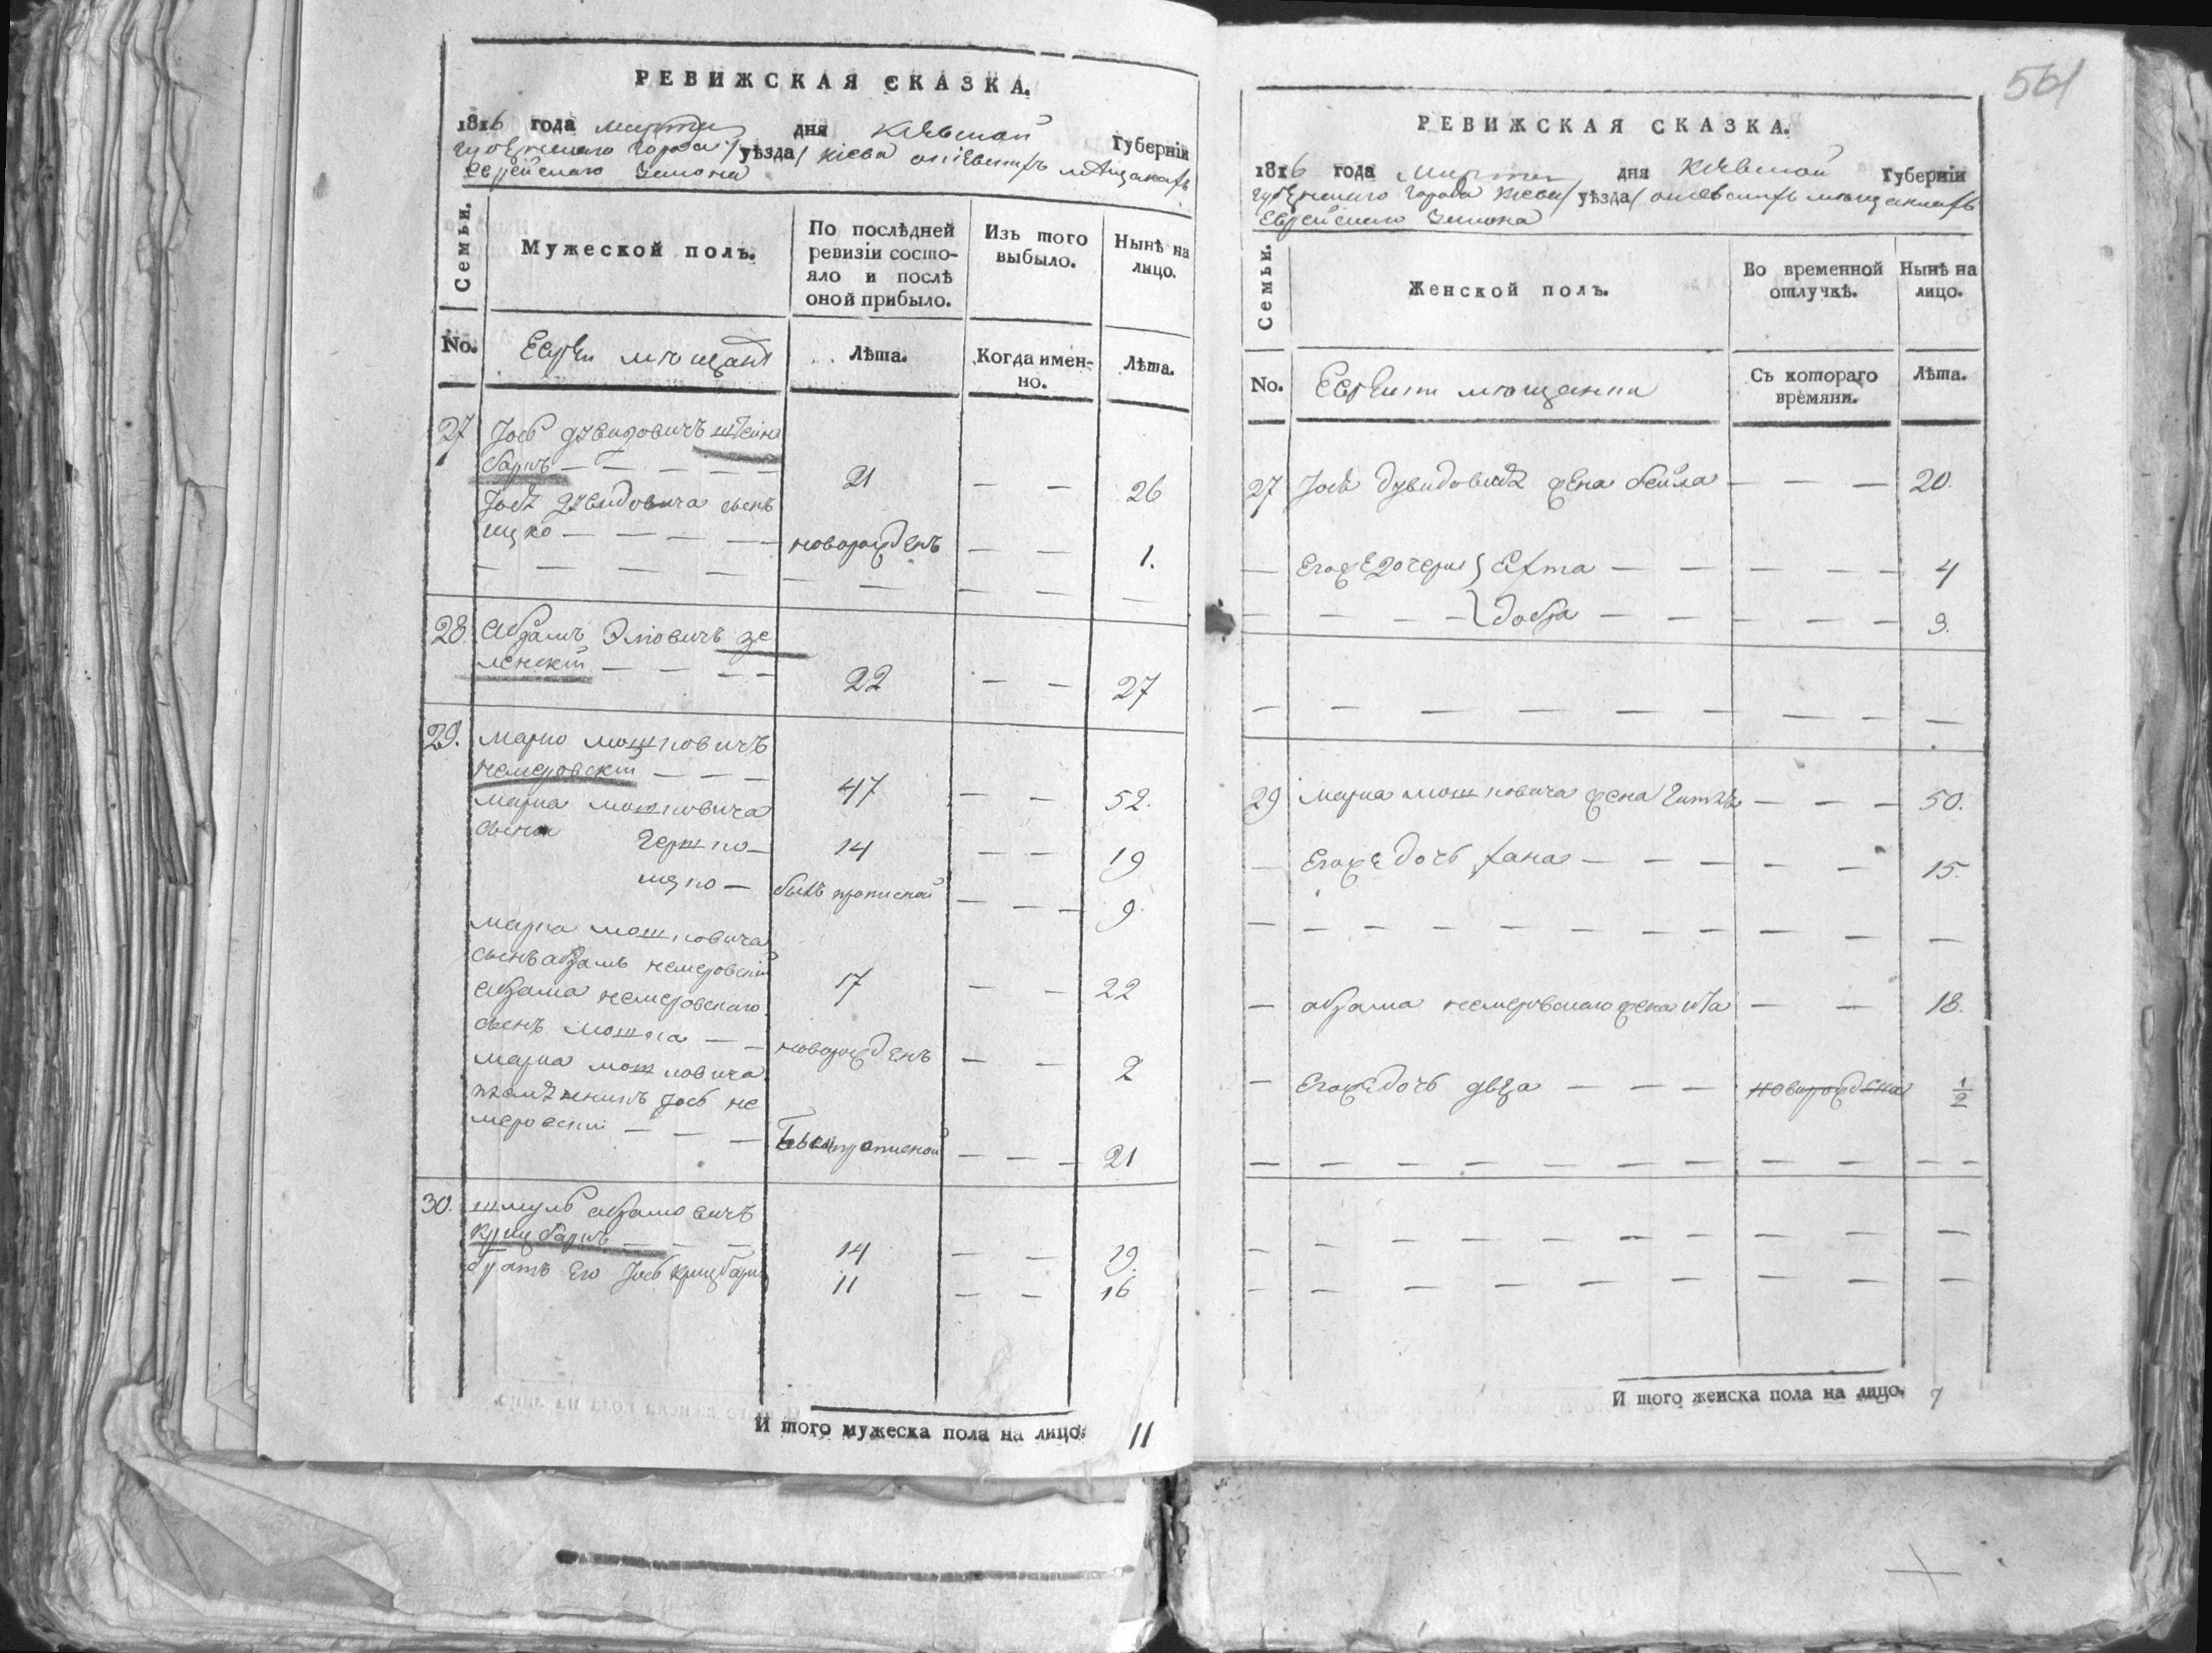 РЕВИЖСКАЯ СКАЗКА.
1816 года марта дня Киевской Губерніи
губернскаго города /уѣзда/ Кіева о мѣщанахъ
Еврейскаго Закона
Семьи.
Мужеской полъ.
По послѣдней ревизіи состояло и послѣ оной прибыло.
Изъ того выбыло.
Нынѣ на лицо.
No.
Евреи мещане
Лѣта.
Когда именно.
Лѣта.
27 Іось Дувидовичъ Штейн
барнъ — — — — — 21 — — 26
Іося Дувидовича сынъ
Ицко — — — — — новорожденъ — — 1.
28. Абрамъ Эліовичъ Зе
ленскій — — — — 22 — — 27
29. Марко Мошковичъ
Немеровскій — — — 47 — — 52.
Марка Мошковича
сыны Гершко — 14 — — 19
Ицко — былъ прописной — — — 9.
Марка Мошковича
сынъ Абрамъ Немеровскій 17 — — 22
Абрама Немеровскаго
сынъ Мошка — — новорожденъ — — 2
Марка Мошковича
племѣнникъ Іось Не
меровскій — — — Былъ прописной — — — 21
30. Шмуль Абрамовичъ
— — — 14 — — 19.
братъ Его Іось 11 — — 16
И того мужеска пола на лицо: 11
561
РЕВИЖСКАЯ СКАЗКА.
1816 года Марта дня Киевской Губерніи
губернскаго города Кіева /уѣзда/ о мещанахъ
Еврейскаго Закона
Семьи.
Женской полъ.
Во временной отлучкѣ.
Нынѣ на лицо.
No.
Еврейки мещанки
Съ котораго времяни.
Лѣта.
27 Іося Дувидовича жена Бейла — — — 20.
— Егоже дочери Ента — — — — — 4
— — — — Добра — — — — — 3.
29 Марка Мошковича жена Гитля — — — 50.
— Егоже дочь Хана — — — — — — 15.
— Абрама Немеровскаго жена Ита — — 18.
— Егоже дочь Двера — — — новорождена 1/2
И того женска пола на лицо. 7